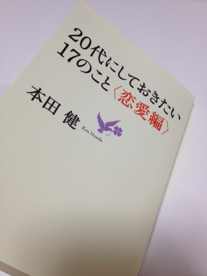 20代にしておきたい
17のこと〈恋愛編〉
本田 健
Ken Honda